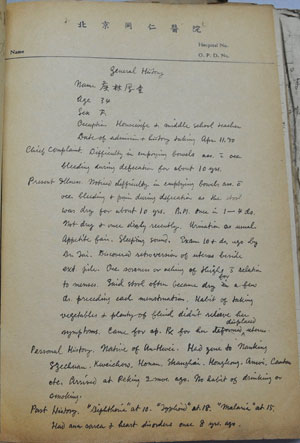 北京同仁醫院
Name
Hospital No.
O. P. D. No.
General History
Name
Age 34
Sex F.
Occupation Housewife & middle school teacher
Date of admission & history taking Apr. 11, 50
Chief Complaint Difficulty in emptying bowels assoc. c̄ occ.
bleeding during defecation for about 10 yrs.
Present Illness. Noticed difficulty in emptying bowels assoc. c̄
occ bleeding & pain during defecation as the stool
was dry for about 10 yrs. B.M. once in 1—4 ds.
Not dry & once daily recently. Urination as usual.
Appetite fair. Sleeping sound. Exam 10+ ds ago by
Dr. Discovered retroversion of uterus beside
ext pile. Occ soreness or aching of thighs c̄ relation
to menses. Said stool often became dry for a few
ds preceding each menstruation. Habit of taking
vegetables & plenty of fluid didn't relieve her
symptoms. Came for op. Rx for her displaced uterus.
Personal History. Native of Anhwei. Had gone to Nanking
Szechuan, Kweichow, Honan, Shanghai, Hongkong, Amoi, Canton
etc. Arrived at Peking 2 mos ago. No habit of drinking or
smoking.
Past History. "Diphtheria" at 10. "Typhoid" at 18. "Malaria" at 15.
Had & heart disorders once 8 yrs. ago.